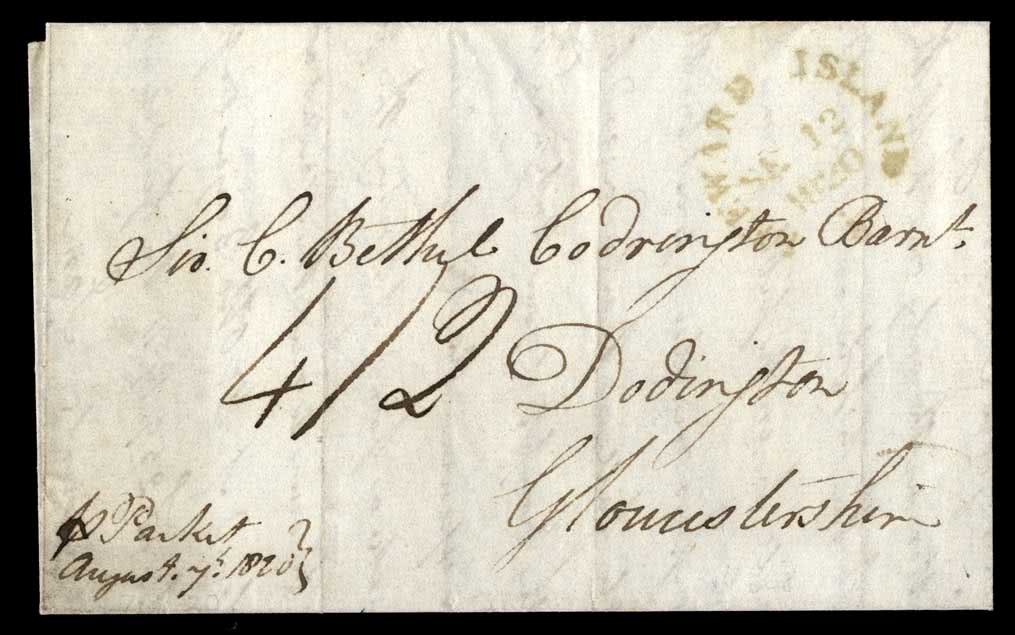 WARD ISLAND
12
Sir. C. Bethyl Codrington Barnt.
4/2 Dodington
Gloucestershire
p Packet
August. 7th. 1820